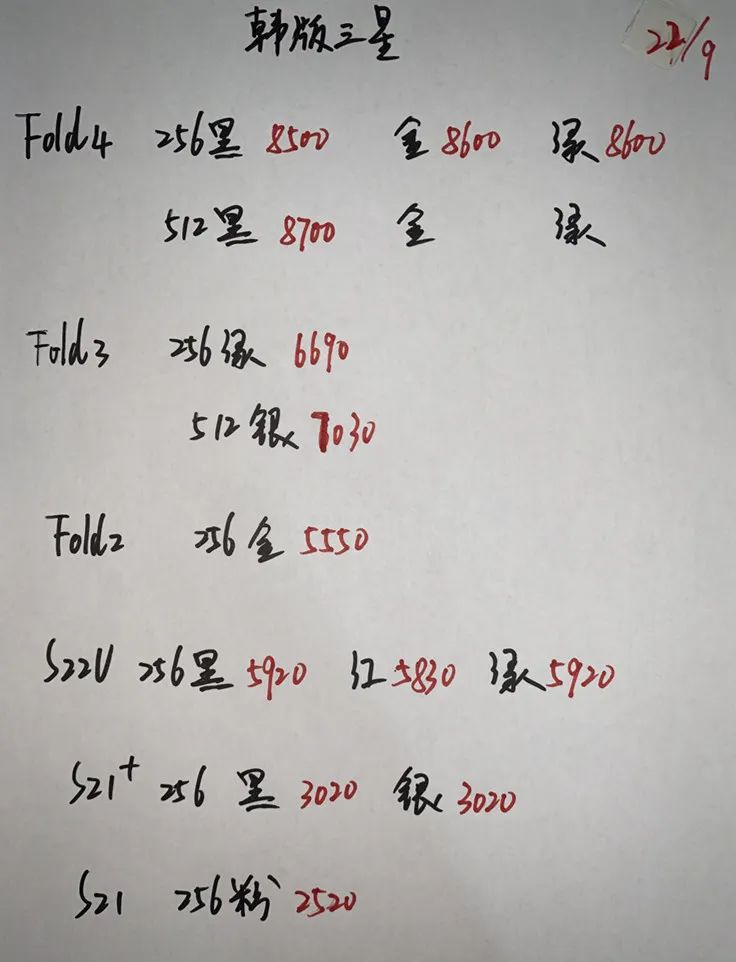 韩版三星 22/9
Fold4 256黑 8500 金 8600 绿 8600
512黑 8700 金 绿
Fold3 256绿 6690
512银 7030
Fold2 256金 5550
S22U 256黑 5920 红 5830 绿 5920
S21+ 256 黑 3020 银 3020
S21 256粉 2520